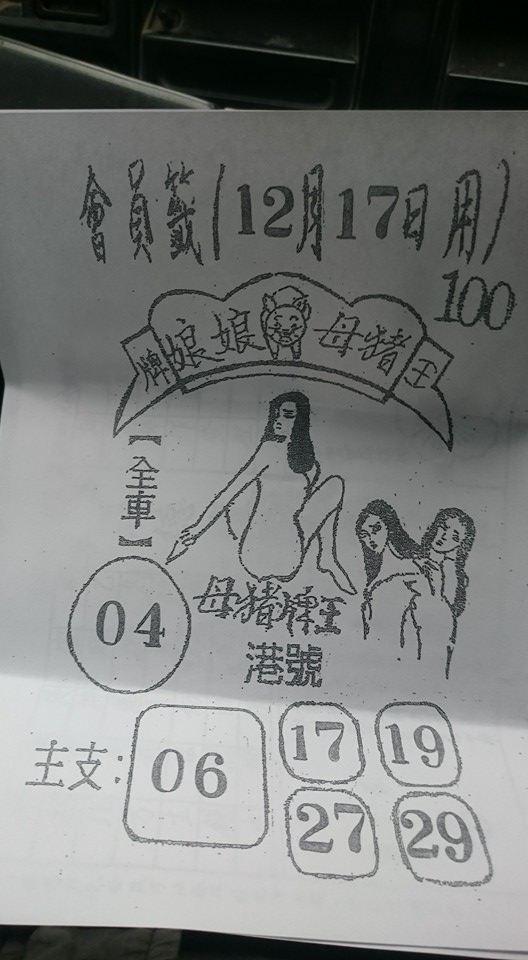 會員籤(12月17日用)
100
牌娘娘 母豬王
【全車】
04
母豬牌王
港號
主支:06
17 19
27 29